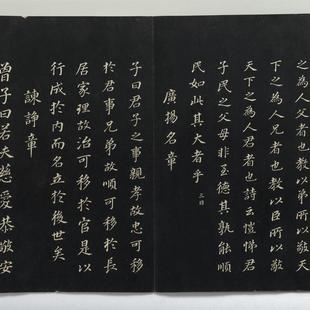 之為人父者也教以弟所以敬天
下之為人兄者也教以臣所以敬
天下之為人君者也詩云愷悌君
子民之父母非至德其孰能順
民如此其大者乎
廣揚名章
子曰君子之事親孝故忠可移
於君事兄弟故順可移於長
居家理故治可移於官是以
行成於內而名立於後世矣
諫諍章
曾子曰若夫慈愛恭敬安